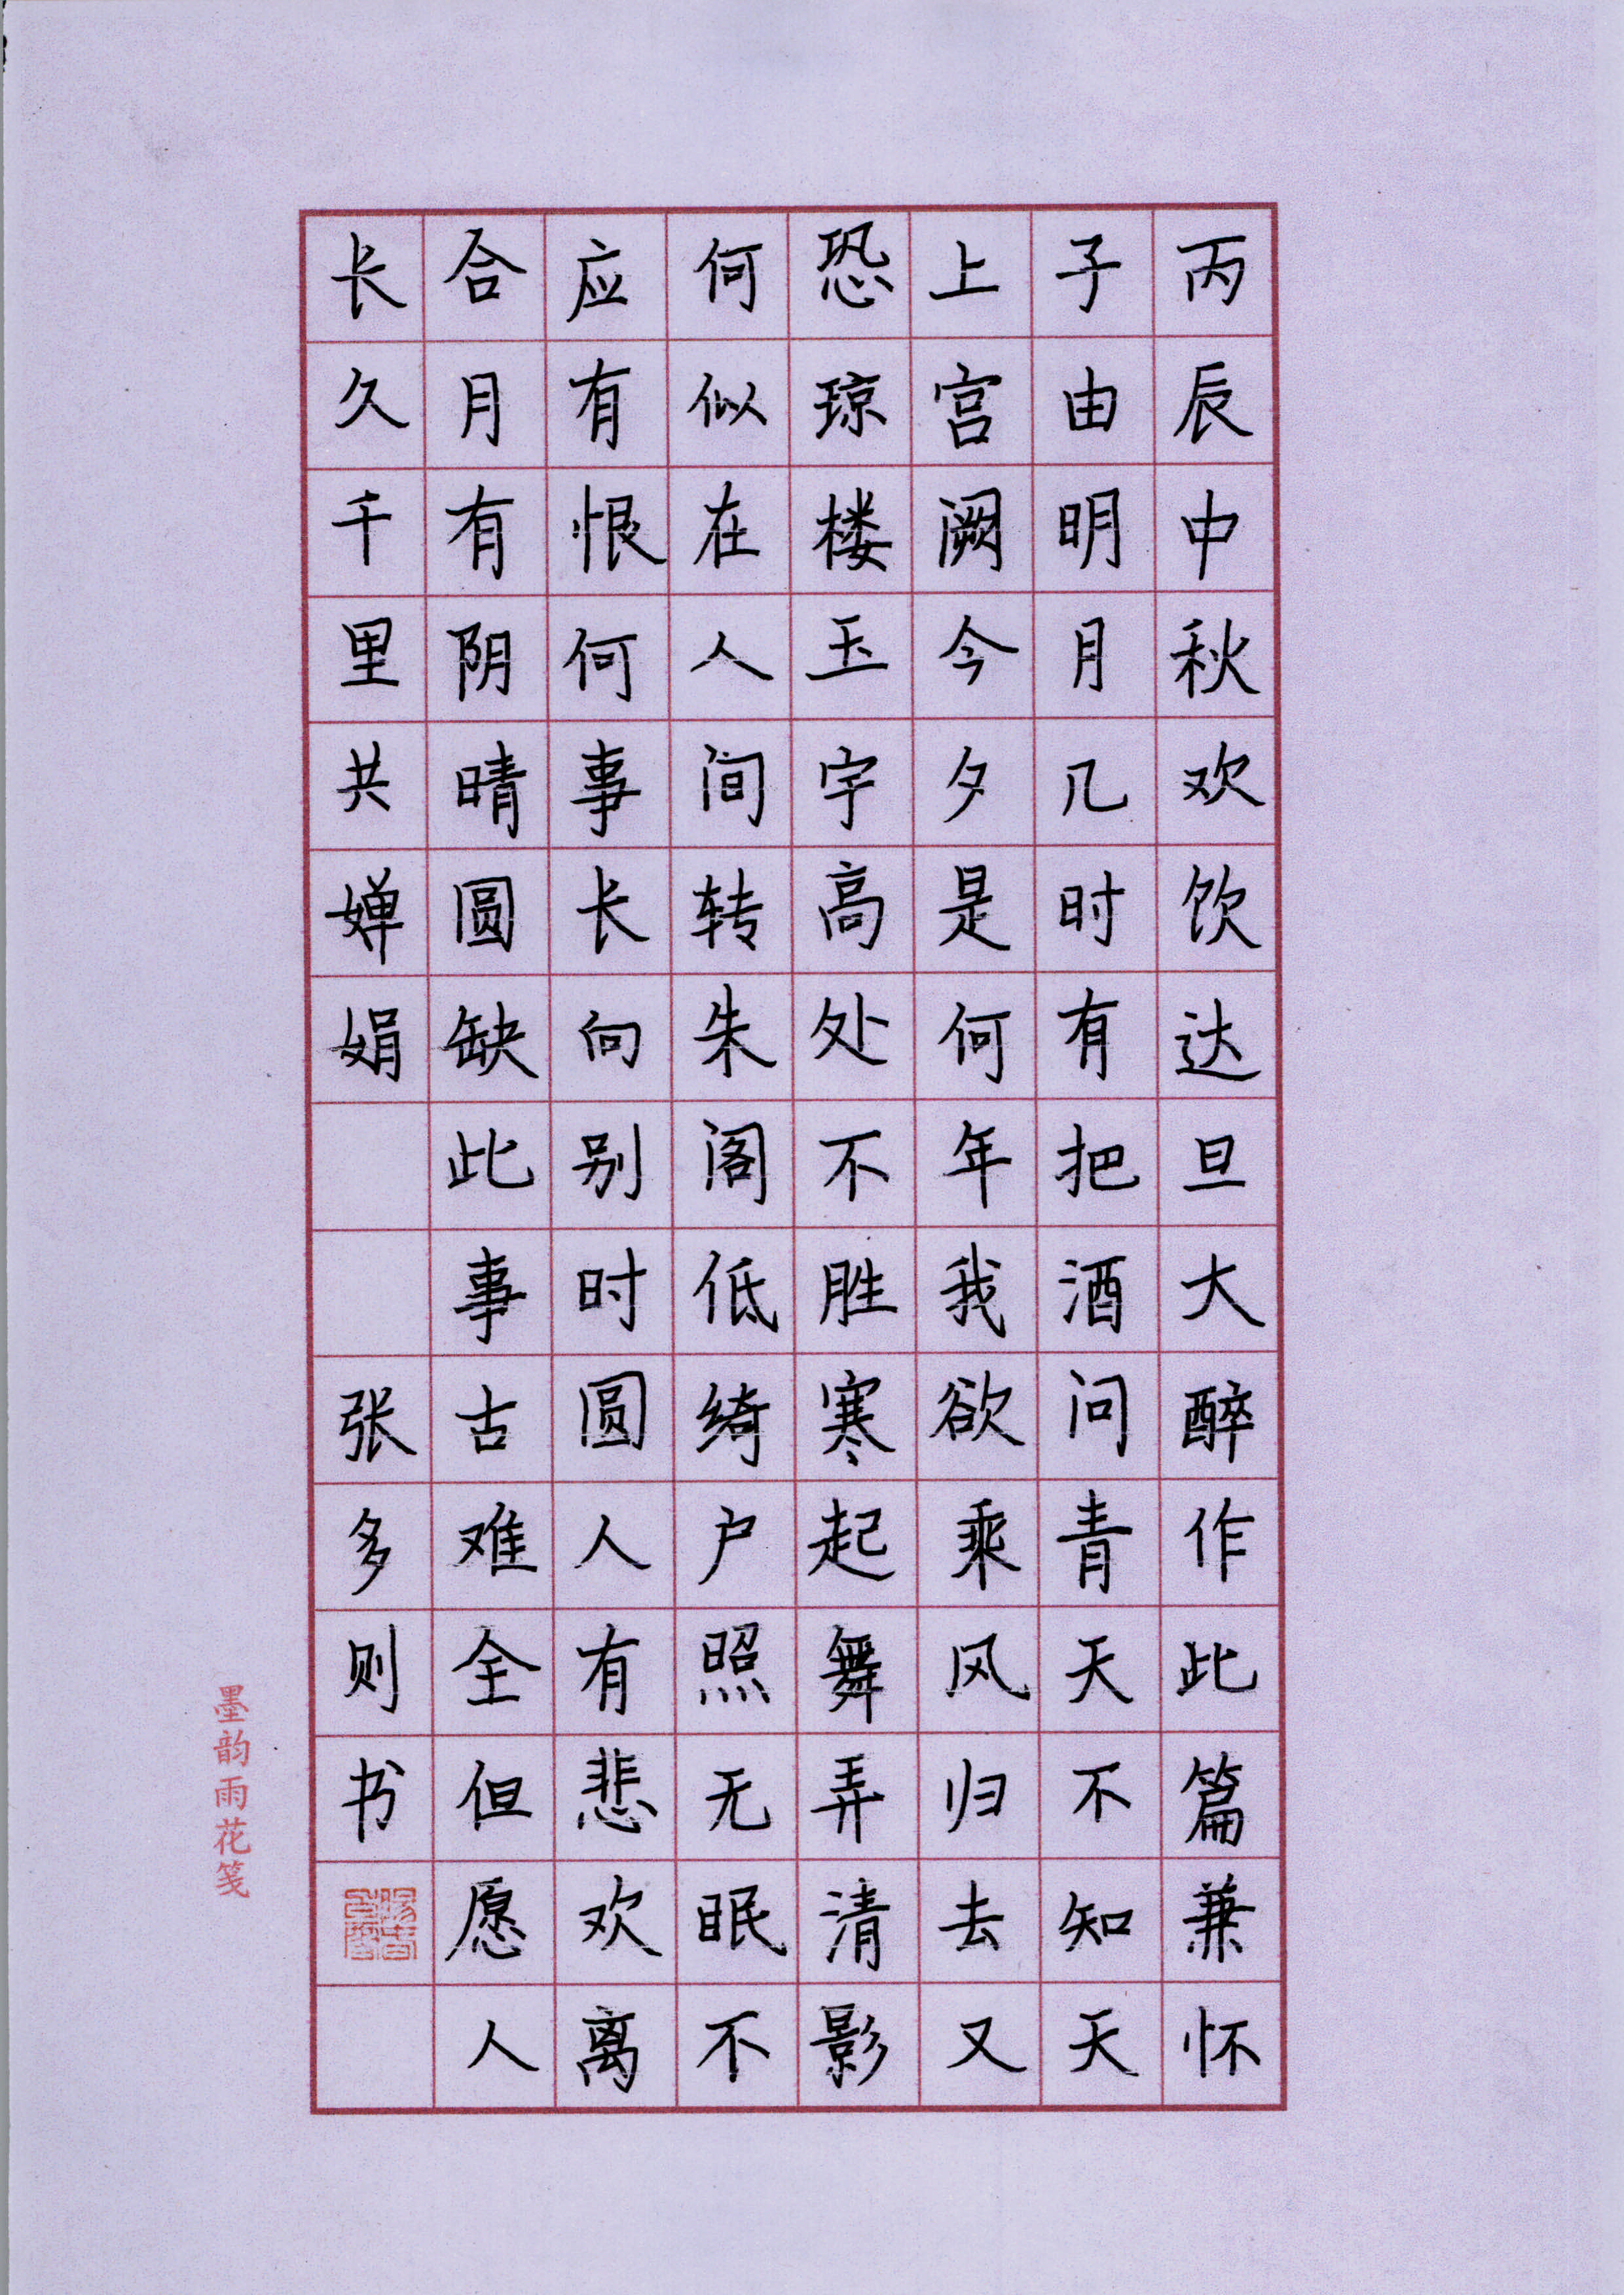 丙辰中秋欢饮达旦大醉作此篇兼怀
子由明月几时有把酒问青天不知天
上宫阙今夕是何年我欲乘风归去又
恐琼楼玉宇高处不胜寒起舞弄清影
何似在人间转朱阁低绮户照无眠不
应有恨何事长向别时圆人有悲欢离
合月有阴晴圆缺此事古难全但愿人
长久千里共婵娟
张多则书
墨韵雨花笺